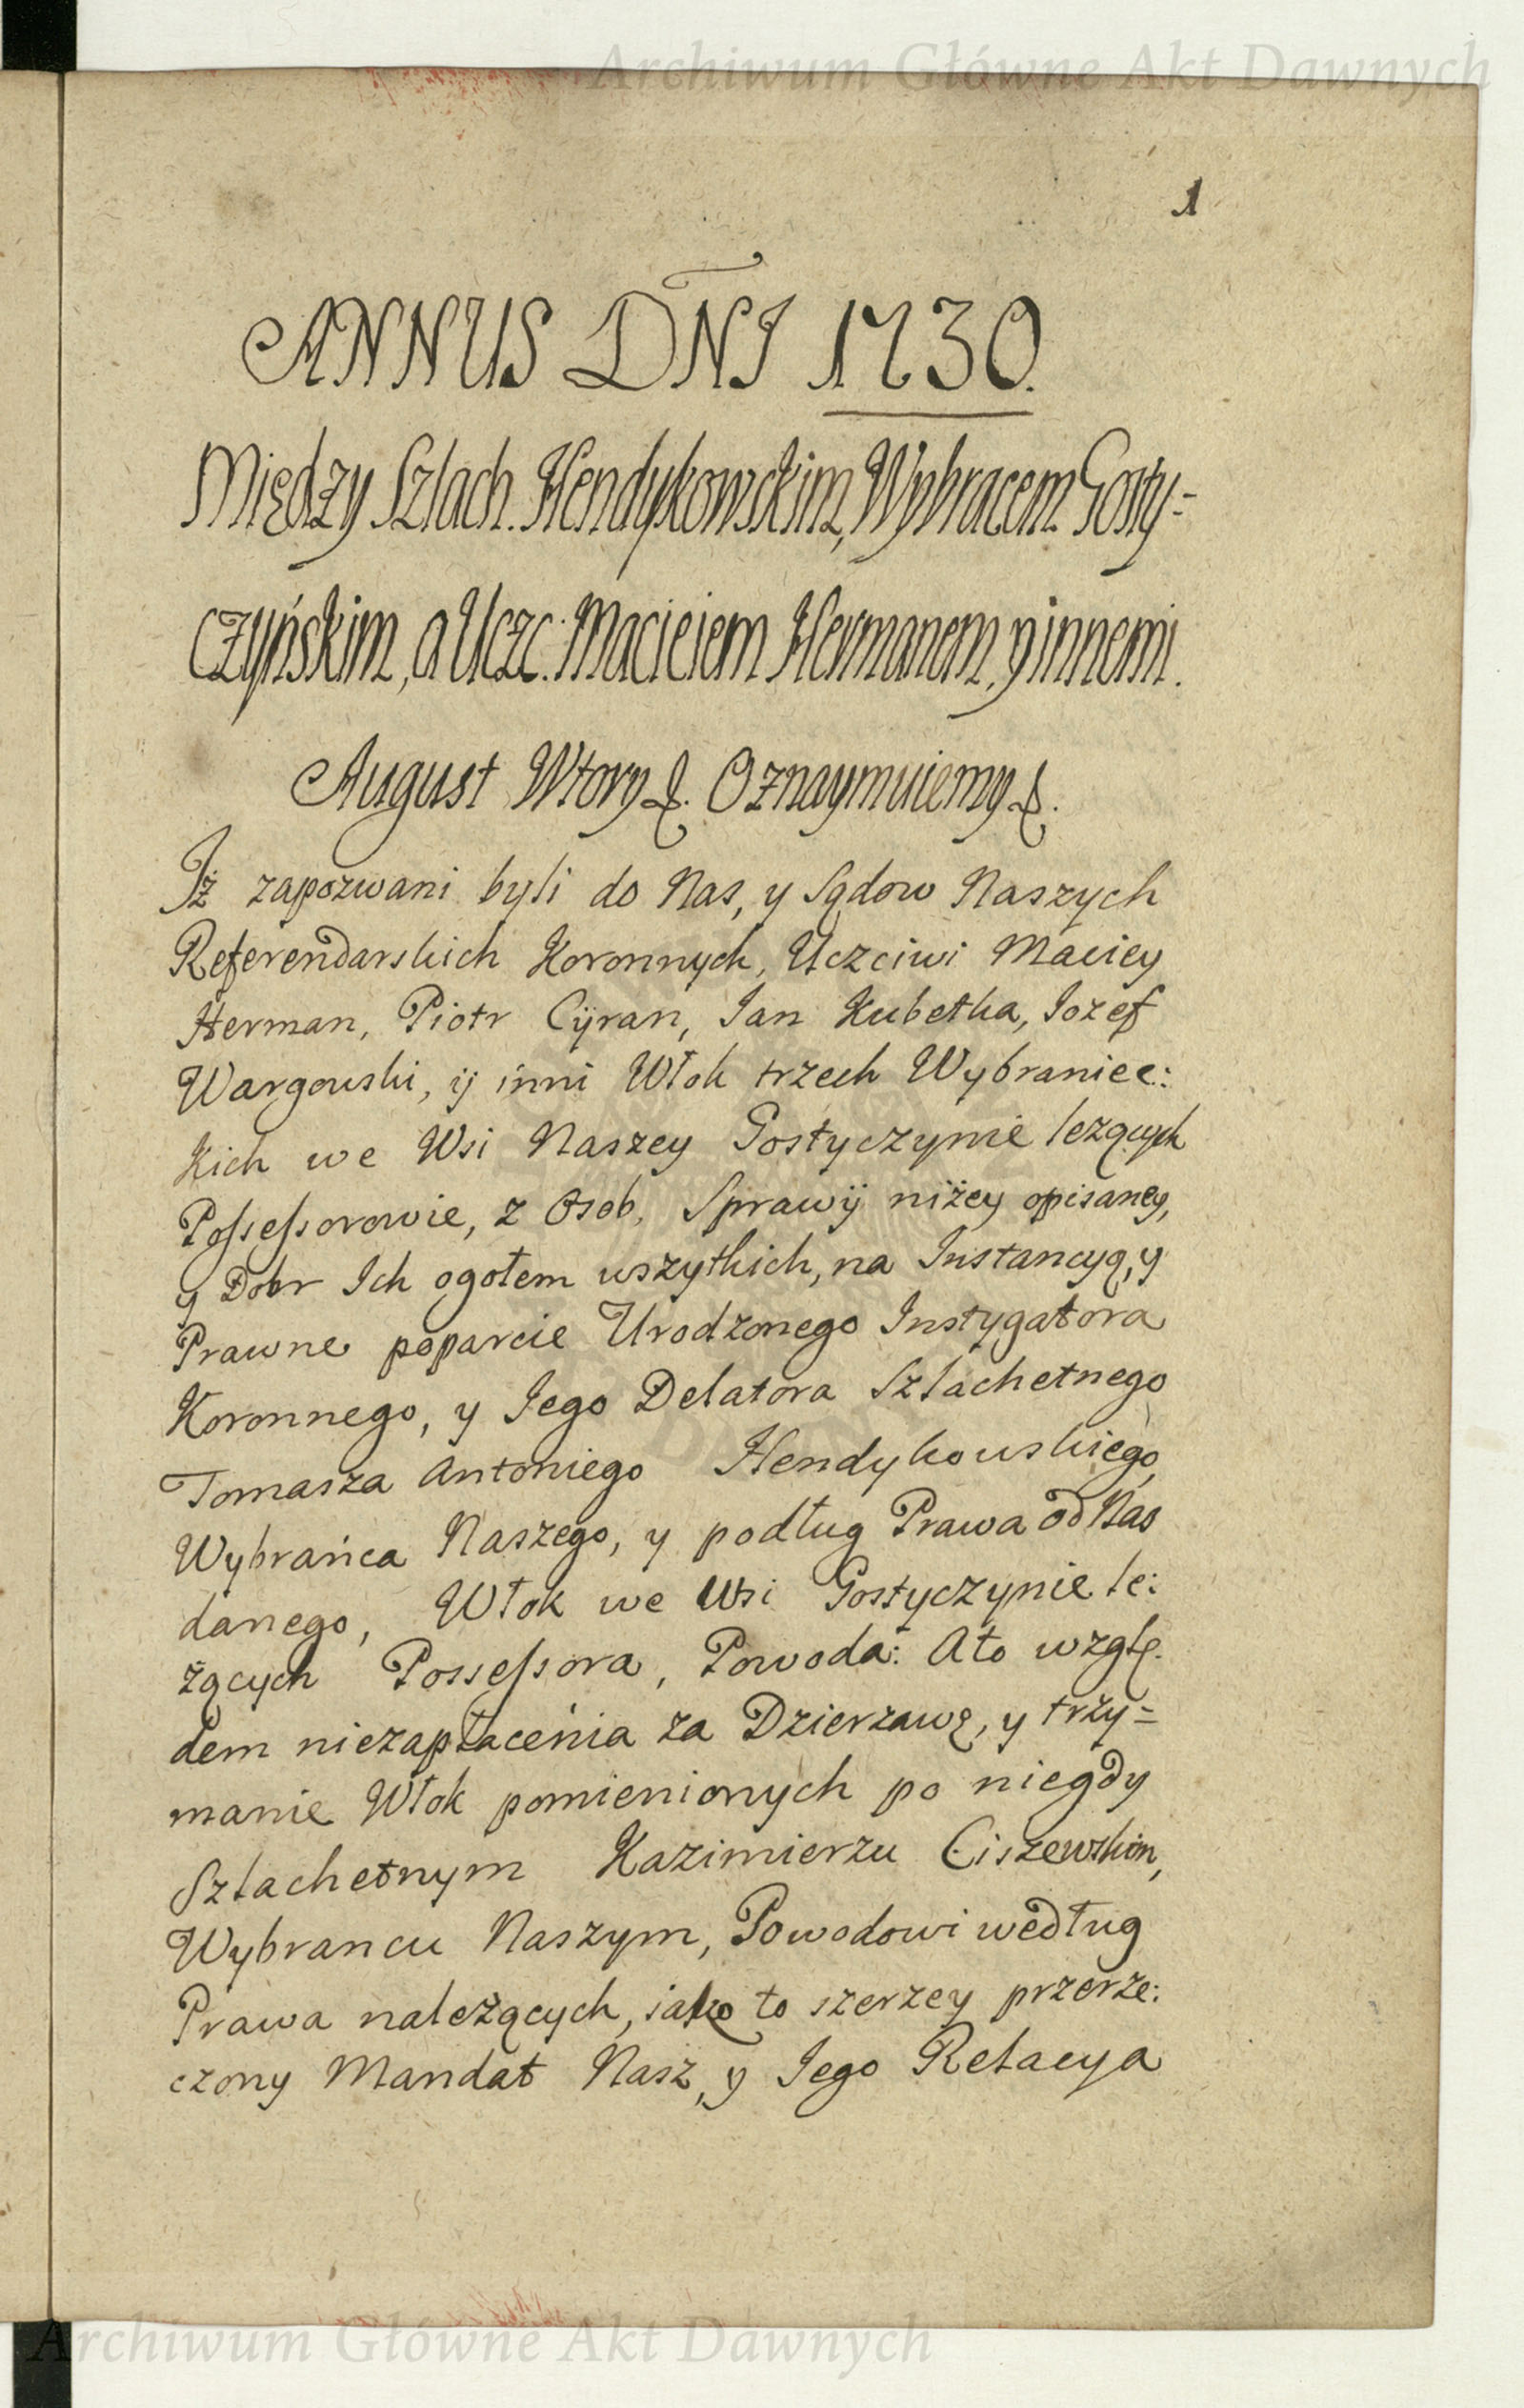 Archiwum Główne Akt Dawnych
1
ANNUS DNI 1730.
Między Szlach. Hendykowskim, Wybracem Gosty-
czyńskim, a Uczc. Macieiem Hermanem, y innemi.
August Wtory &. Oznaymuiemy &.
Iż zapozwani byli do Nas, y Sądow Naszych
Referendarskich Koronnych, Uczciwi Maciey
Herman, Piotr Cÿran, Jan Kubetka, Jozef
Wargowski, ÿ inni Włok trzech Wybraniec:
kich we Wsi Naszey Gostyczynie leżących
Possessorowie, z Osob, Sprawÿ niżey opisaney,
y Dobr Ich ogołem wszytkich, na Instancyą, y
Prawne poparcie Urodzonego Instygatora
Koronnego, y Jego Delatora Szlachetnego
Tomasza Antoniego Hendykowskiego,
Wybrańca Naszego, y podług Prawa od Nas
danego, Włok we Wsi Gostyczynie le:
żących Possessora, Powoda: A to wzglę.
dem niezapłacenia za Dzierzawę, y trzy=
manie Włok pomienionych po niegdy
Szlachetnym Kazimierzu Ciszewskim,
Wybrancu Naszym, Powodowi według
Prawa należących, iako to szerzey przerze:
czony Mandat Nasz, y Jego Relacya
Archiwum Główne Akt Dawnych